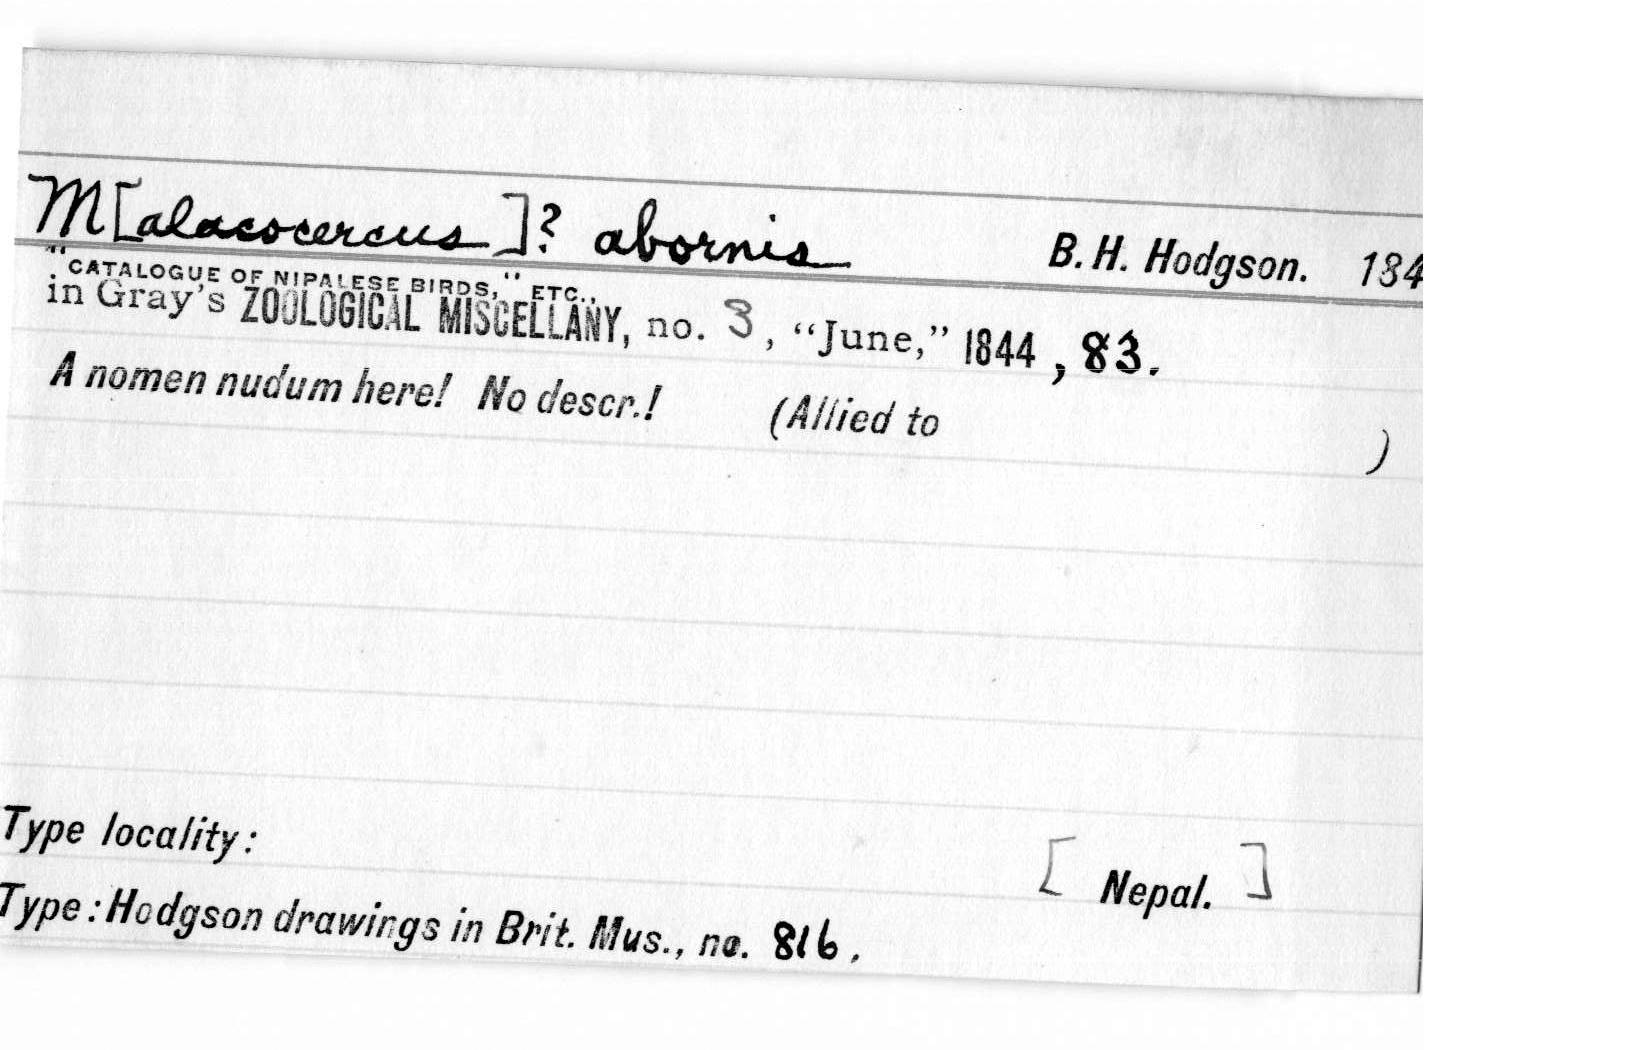 M[alacocercus]? abornis B. H. Hodgson. 184
"CATALOGUE OF NIPALESE BIRDS," ETC.,
in Gray's ZOOLOGICAL MISCELLANY, no. 3, "June," 1844, 83.
A nomen nudum here! No descr.! (Allied to )
Type locality: [ Nepal. ]
Type: Hodgson drawings in Brit. Mus., no. 816.